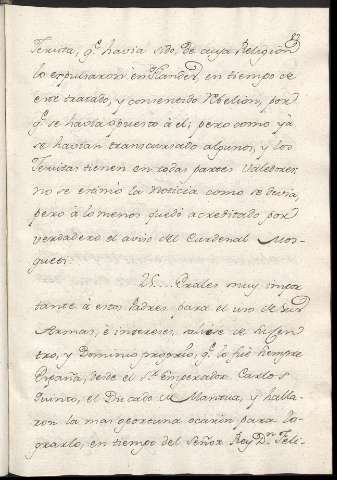 Jesuita, q.e havia sido, de cuya Religion
lo expulsaron en Flandes, en tiempo de
este tratado, y consentido Rebelion, por
q.e se havia opuesto à el; pero como yà
se havian transcursado algunos, y los
Jesuitas tienen en todas partes Valedores,
no se estimò la noticia como se devia,
pero à lo menos quedò acreditado por
verdadero el aviso del Cardenal Mos-
queti.
25.... Erales muy impor
tante à estos Padres para el uso de sus
Armas, è intereses, salirse de su Cen-
tro, y Dominio proprio, q.e lo fuè siempre
España, desde el S.r Emperador Carlos
Quinto, el Ducado de Mantua, y halla-
ron la mas oportuna ocasion para lo-
grarlo, en tiempo del Señor Rey D.n Feli-